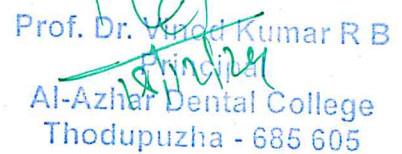 Prof. Dr. Vinod Kumar R B
Principal
18/12/24
Al-Azhar Dental College
Thodupuzha - 685 605